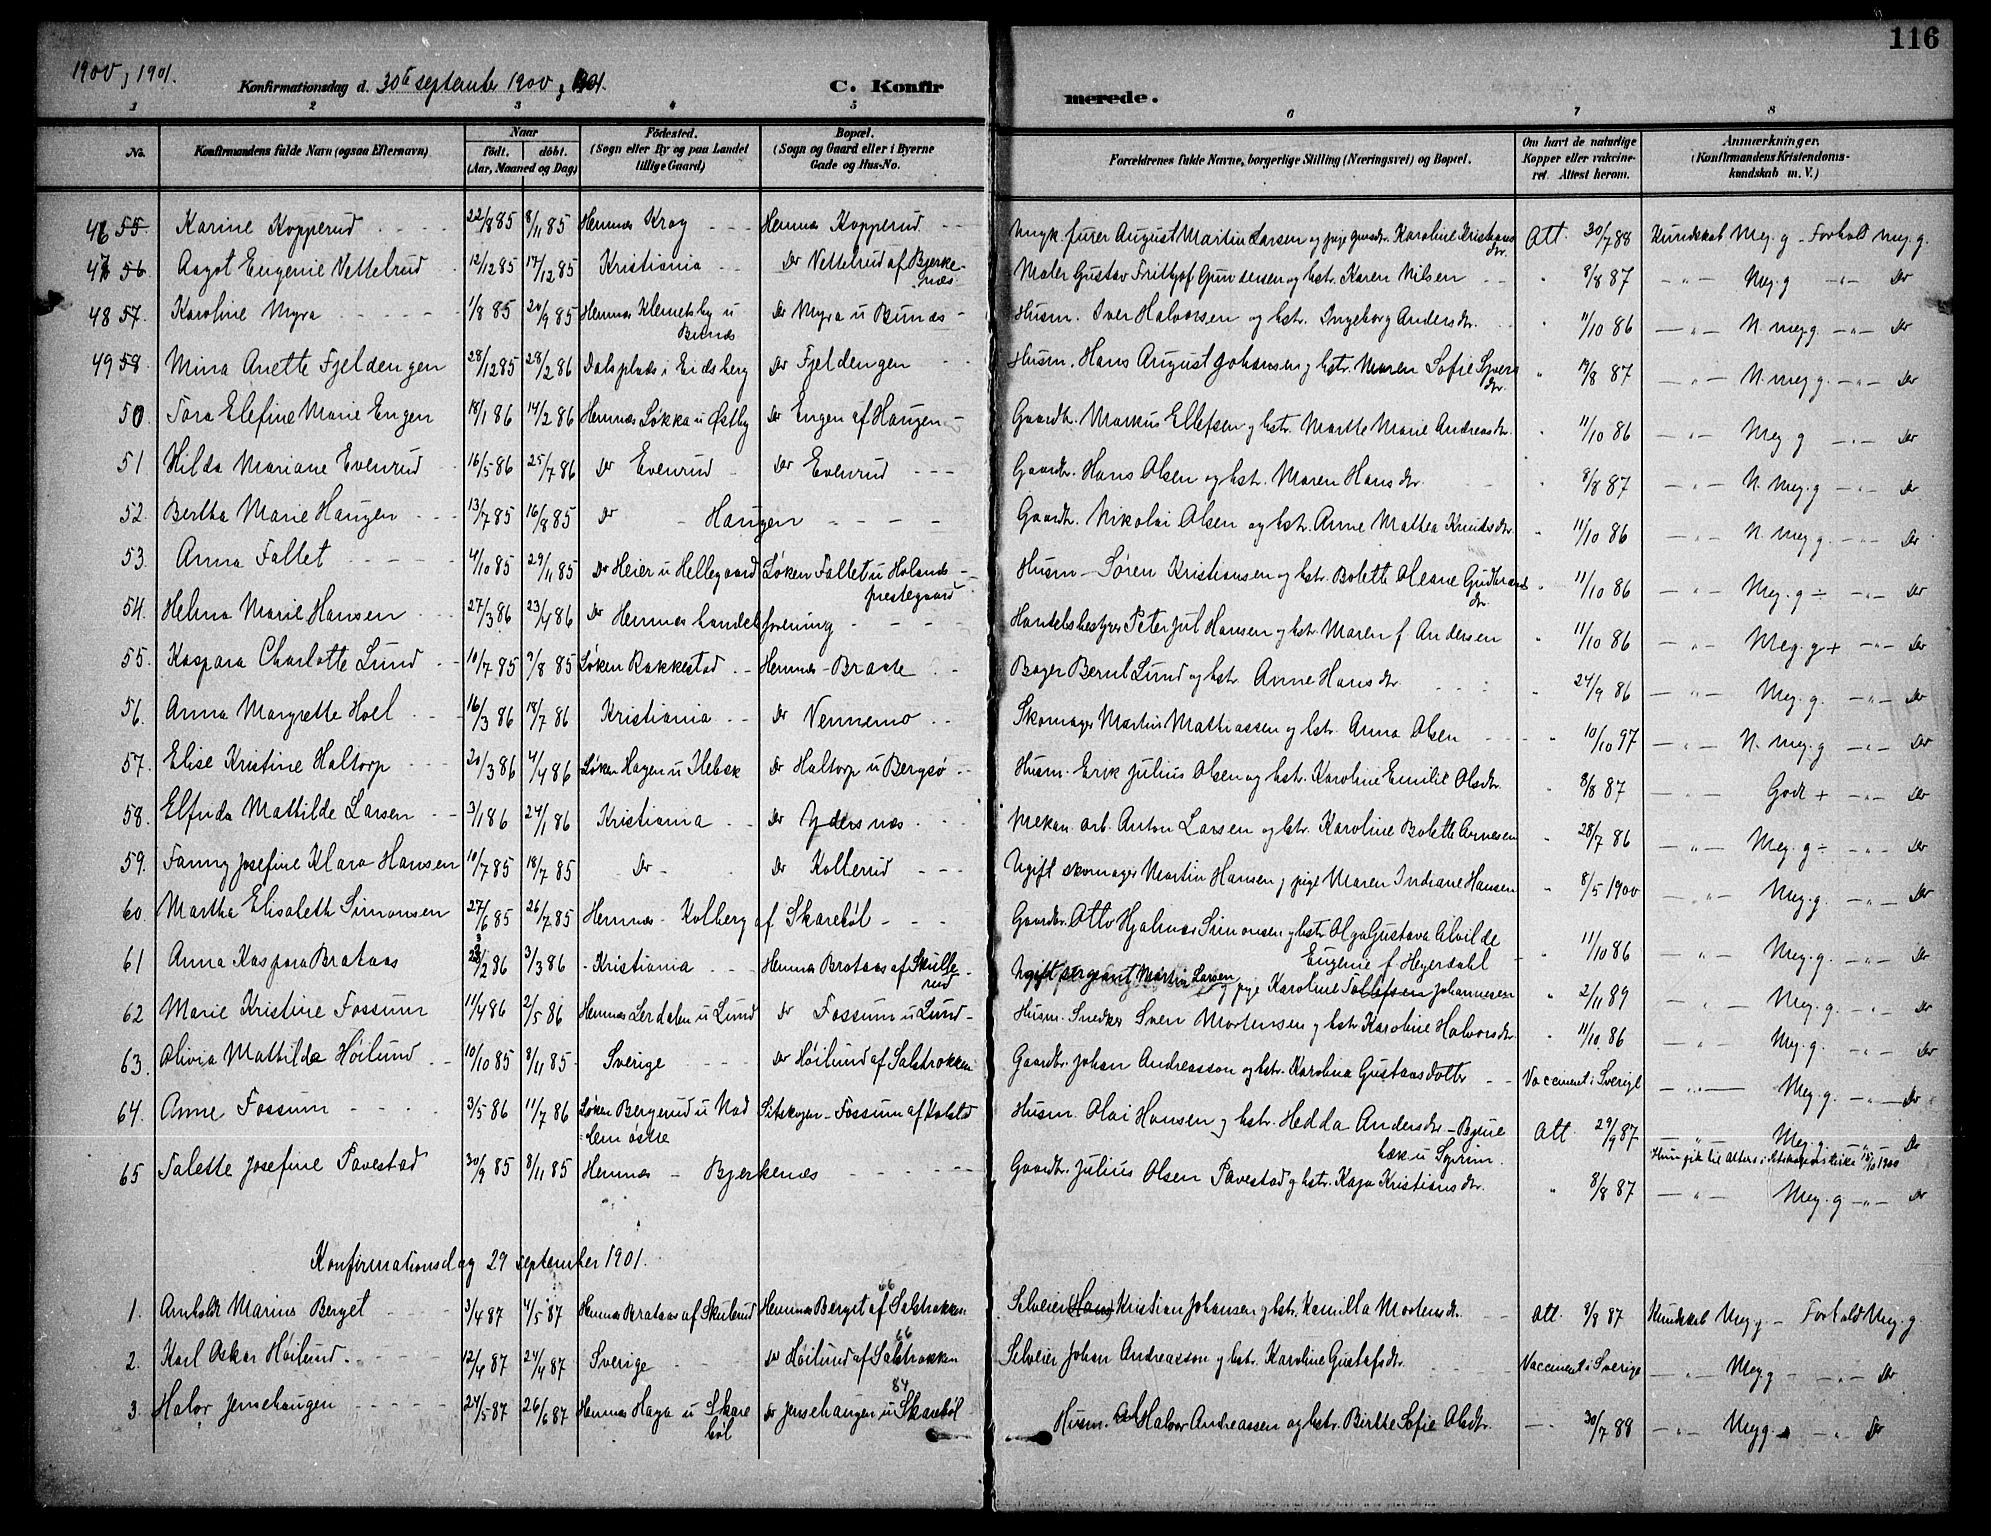 116
1900, 1901.
Konfirmationsdag d. 30te september 1900, 1901.
C. Konfirmerede.
1 2 3 4 5 6 7 8
No.
Konfirmandens fulde Navn (ogsaa Efternavn)
Naar
födt. döbt.
(Aar, Maaned og Dag)
Födested.
(Sogn eller By og paa Landet
tillige Gaard)
Bopæl.
(Sogn og Gaard eller i Byerne
Gade og Hus-No.
Forældrenes fulde Navne, borgerlige Stilling (Næringsvei) og Bopæl.
Om havt de naturlige
Kopper eller vakcine-
ret. Attest herom.
Anmærkninger.
(Konfirmandens Kristendoms-
kundskab m. V.)
46 55 Karine Kopperud 22/8 85 8/11 85 Hemnæs Krog Hemnæs Kopperud Ungk. furer August Martin Larsen og pige Karoline Kristians dr. Att. 30/7 88 Kundskab Meg. g. - Forhold meg. g.
47 56. Aagot Eugenie Vettelrud 12/12 85 17/12 85 Kristiania Do Vettelrud af Bjerke-
næs Maler Gustav Fritjof Gundersen og hstr. Karen Nilsen " 8/8 87 - " - Meg. g - " - Do
48 57. Karoline Myra 1/8 85 20/9 85 Hemnæs Klemetsby u
Bunæs Do Myra u Bunæs Husm. Iver Halvorsen og hstr. Ingeborg Andersdr. " 11/10 86 - " - N. meg g. - " - Do
49 58. Mina Anette Fjeldengen 28/12 85 28/2 86 Dalsplads i Eidsberg Do Fjeldengen Husm. Hans August Johansen og hstr. Maren Sofie Syvers
dr. " 17/8 87 - " - N. meg g. - " - Do
50 Tora Elefine Marie Engen 18/1 86 14/2 86 Hemnæs Løkka u Østby Do Engen af Haugen Gaardbr. Markus Ellefsen og hstr. Marthe Marie Andreasdr. " 11/10 86 - " - Meg g - " - Do
51 Hilda Mariane Evenrud 16/5 86 25/7 86 Do Evenrud Do Evenrud Gaardbr. Hans Olsen og hstr. Maren Hansdr. " 8/8 87 - " - N. Meg. g - " - Do
52. Bertha Marie Haugen 13/7 85 16/8 85 Do - Haugen Gaardbr. Nikolai Olsen og hstr. Anne Mathea Knudsdr. " 11/10 86 - " - N. meg g. - " - Do
53. Anna Fallet 4/10 85 29/11 85 Do Heier u Hellegaard Løken Fallet u Hølands
prestegaard Husm - Søren Kristiansen og hstr. Bolette Oleane Gudbrands
dr. " 11/10 86 - " - Meg. g ÷ - " - Do
54. Helena Marie Hansen 27/3 86 23/4 86 Do Hemnes handelsforening Handelsbestyrer Peter Jul Hansen og hstr. Maren f Andersen " 11/10 86 - " - Meg. g + - " - Do
55. Kaspara Charlotte Lund 10/7 85 9/8 85 Løken Rakkestad Hemnæs - Braate Bager Bernt Lund og hstr. Anne Hansdr. " 24/9 86 - " - Meg. g. - " - Do
56. Anna Margrette Hoel 16/3 86 18/7 86 Kristiania Do Vennemo Skomager Martin Mathiassen og hstr. Anna Olsen " 10/10 97 - " - N. meg. g - " - Do
57. Elise Kristine Haltorp 20/3 86 4/4 86 Løken Hagen u Ilebæk Do Haltorp u Bergsjø Husm. Erik Julius Olsen og hstr. Karoline Emilie Olsdr. " 8/8 87 - " - Godt + - " - Do
58. Elfrida Mathilde Larsen 3/1 86 24/1 86 Kristiania Do Ydersnæs Mekan. arb. Anton Larsen og hstr. Karoline Bolette Arnesen " 28/7 86 - " - Meg. g ÷ - " - Do
59. Fanny Josefine Klara Hansen 10/7 85 18/7 85 Do Do Kollerud Ugift skomager Martin Hansen og pige Maren Indiane Hansen " 8/5 1900 - " - Meg. g. - " - Do
60. Martha Elisabeth Simonsen 27/6 85 26/7 85 Hemnæs - Kolberg af Skarebøl Gaardbr. Otto Hjalmar Simonsen og hstr. Olga Gustava Alvilde
Eugenie f Heyerdahl " 11/10 86 - " - Meg. g. - " - Do
61 Anna Kaspara Brataas 23/2 86 3/3 86 Kristiania Hemnæs Brataas af Skulle-
rud Ugift sergeant Martin Larsen og pige Karoline Tollefsen Johannesen " 2/11 89 - " - Meg. g. - " - Do
62 Marie Kristine Fossum 11/4 86 2/5 86 Hemnæs Lerdalen u Lund Do Fossum u Lund Husm. Snedker Sven Mortensen og hstr. Karoline Halvorsdr. " 11/10 86 - " - Meg. g. - " - Do
63. Olivia Mathilda Höilund 10/10 85 8/11 85 Sverige Do Höilund af Salstrokken Gaardbr. Johan Andreasson og hstr. Karolina Gustavsdotter Vaccineret i Sverige - " - Meg. g. - " - Do
64. Anne Fossum 3/5 86 11/7 86 Løken Bergerud u Nad
dem østre Setskogen - Fossum af Kolstad Husm. Olai Hansen og hstr. Hedda Andersdr - Bjene
bæk u Soprim. Att. 29/9 87 - " - Meg. g. - " - Do
Hun gik til Alters i Setskogens kirke 14/10 1900
65 Talette Josefine Tavestad 30/9 85 8/11 85 Hemnæs - Bjerkenæs Gaardbr. Julius Olsen Tavestad og hstr. Kaja Kristiansdr. " 8/8 87 - " - Meg. g - " - Do
Konfirmationsdag 29 september 1901.
1. Arnholdt Marius Berget 3/4 87 4/5 87 Hemnæs Brataas af Skulerud Hemnæs Berget af 66 Salstrokken Selveier (Hans) Kristian Johansen og hstr. Kamilla Mortensdr. Att. 8/8 87 Kundskab Meg g - Forhold Meg. g.
2. Karl Oskar Höilund. 12/4 87 24/4 87 Sverige Do Höilund af 66 Salstrokken Selveier Johan Andreasson og hstr. Karoline Gustafsdr. Vaccineret i Sverige - " - Meg. g - " - Do
3. Halvor Jensehaugen 24/5 87 26/6 87 Hemnæs Haga u Skare
bøl Do Jensehaugen u 84 Skarebøl Husm. Halvor Andreassen og hstr. Birthe Sofie Olsdr. - " - 30/7 88 - " - Meg g. - " - Do